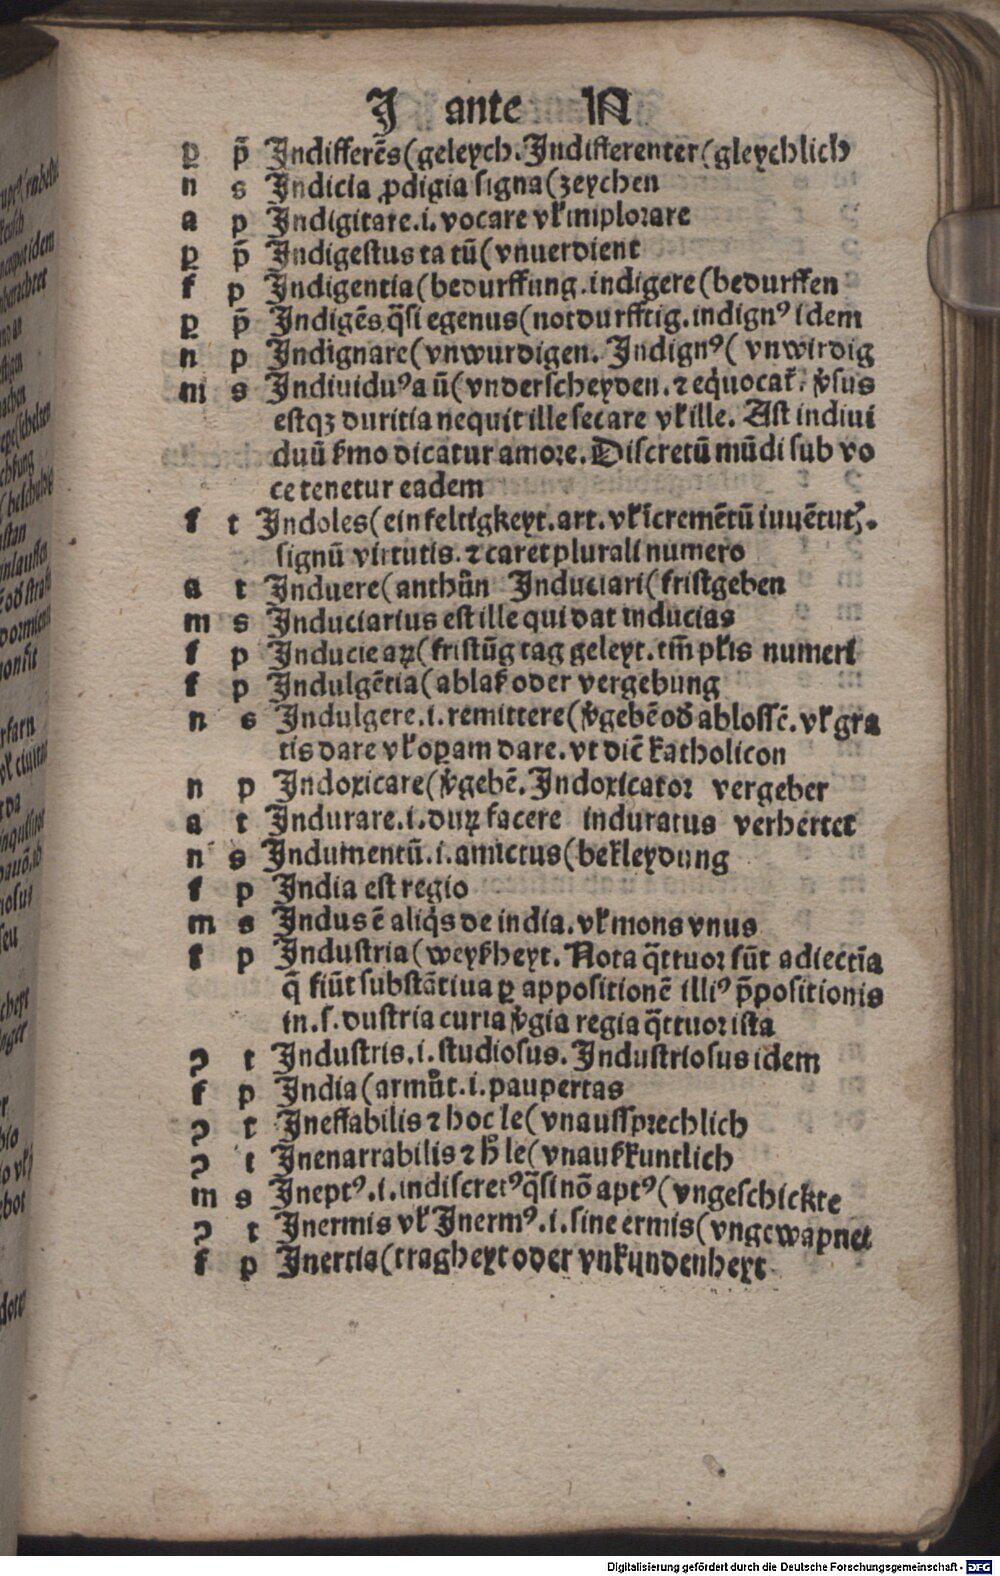 J ante IN
ꝑ p̄ Indifferēs(geleych. Indifferenter(gleychlich
n s Indicia ꝓdigia signa(zeychen
a p Indigitare.i. vocare vł implorare
ꝑ p̄ Indigestus ta tū(vnuerdient
f p Indigentia(bedurffung. indigere(bedurffen
ꝑ p̄ Indigēs q̄si egenus(notdurfftig. indignꝰ idem
n p Indignare(vnwurdigen. Indignꝰ(vnwirdig
m s Indiuiduꝰ a ū(vnderscheyden. ⁊ equocat̃. v̓sus
estqꝫ duritia nequit ille secare vł ille. Ast indiui
duū ẜmo dicatur amore. Discretū mūdi sub vo
ce tenetur eadem
f t Indoles(einfeltigkeyt. art. vł īcremētū iuuētutꝭ.
signū virtutis. ⁊ caret plurali numero
a t Induere(anthůn Induciari(fristgeben
m s Induciarius est ille qui dat inducias
f p Inducie aꝝ(fristūg tag geleyt. tm̄ pƚis numeri
f p Indulgētia(ablaß oder vergebung
n s Indulgere.i. remittere(v̓gebē od̓ ablossē. vł gra
tis dare vł oꝑam dare. vt dic̄ katholicon
n p Indoxicare(v̓gebē. Indoxicator vergeber
a t Indurare.i. duꝝ facere induratus verhertet
n s Indumentū.i. amictus(bekleydung
f p India est regio
m s Indus ē aliq̇s de india. vł mons vnus
f p Industria(weyßheyt. Nota q̄ttuor sūt adiectīa
q̄ fiūt substātiua ꝑ appositionē illiꝰ p̄positionis
in. s. dustria curia v̓gia regia q̄ttuor ista
ꝯ t Industris.i. studiosus. Industriosus idem
f p India(armůt.i. paupertas
ꝯ t Ineffabilis ⁊ hoc le(vnaussprechlich
ꝯ t Inenarrabilis ⁊ h̓ le(vnaußkuntlich
m s Ineptꝰ.i. indiscretꝰ q̄si nō aptꝰ(vngeschickte
ꝯ t Inermis vł Inermꝰ.i. sine ermis(vngewapnet
f p Inertia(tragheyt oder vnkundenheyt
Digitalisierung gefördert durch die Deutsche Forschungsgemeinschaft - DFG